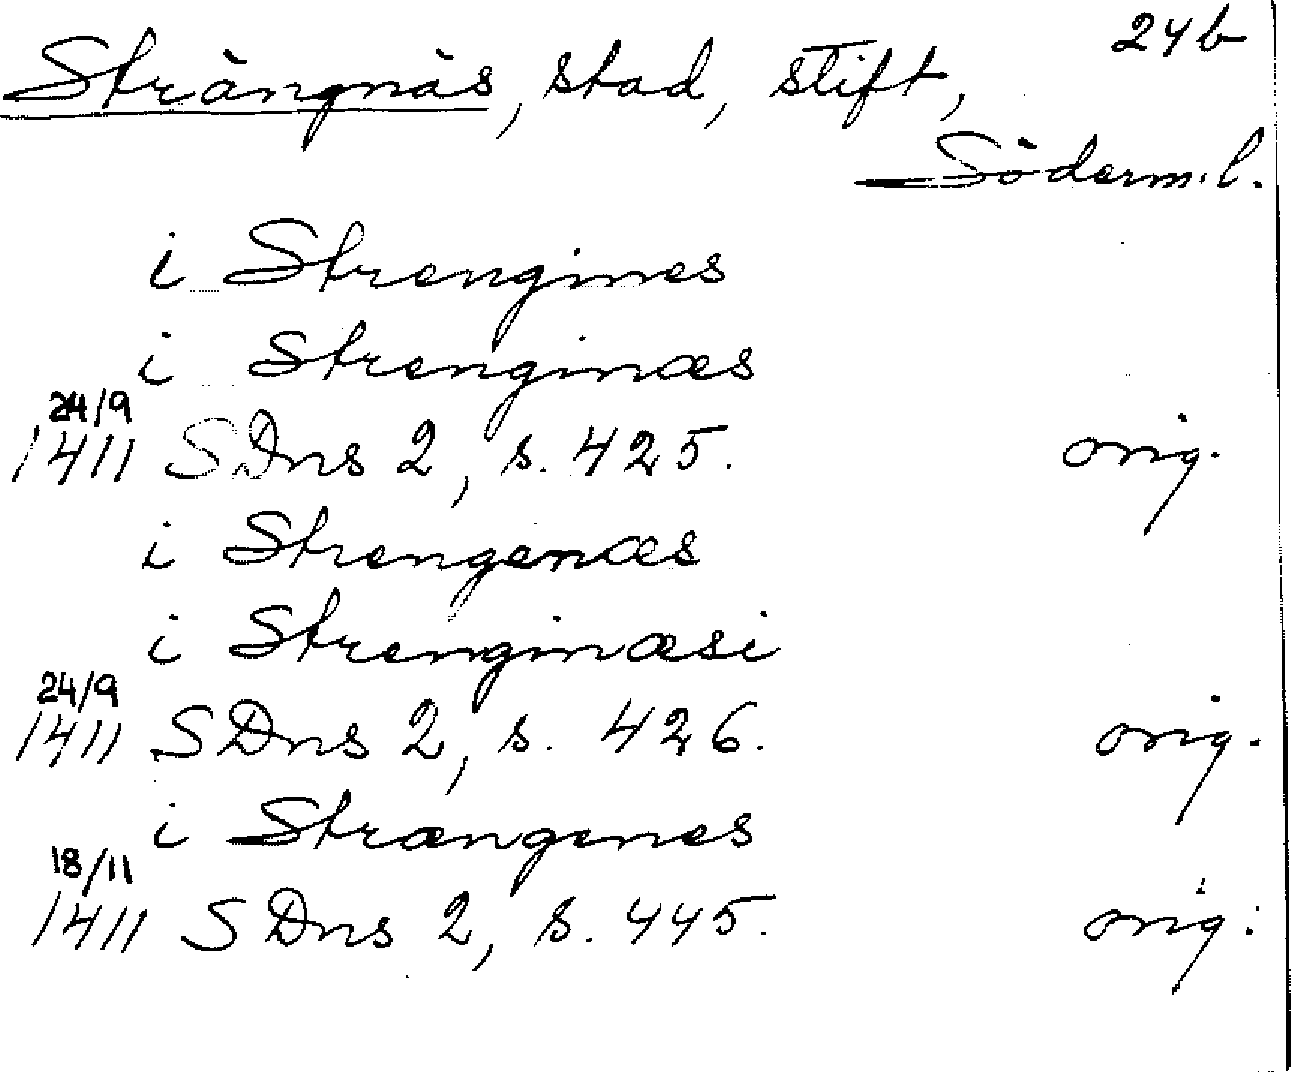 24b
Strängnäs, stad, stift,
Söderm.l.
i Strengines
i Strenginæs
24/9
1411 SDns 2, s. 425. orig.
i Strengenæs
i Strenginæsi
24/9
1411 SDns 2, s. 426. orig.
i Strængenes
18/11
1411 SDns 2, s. 445. orig.